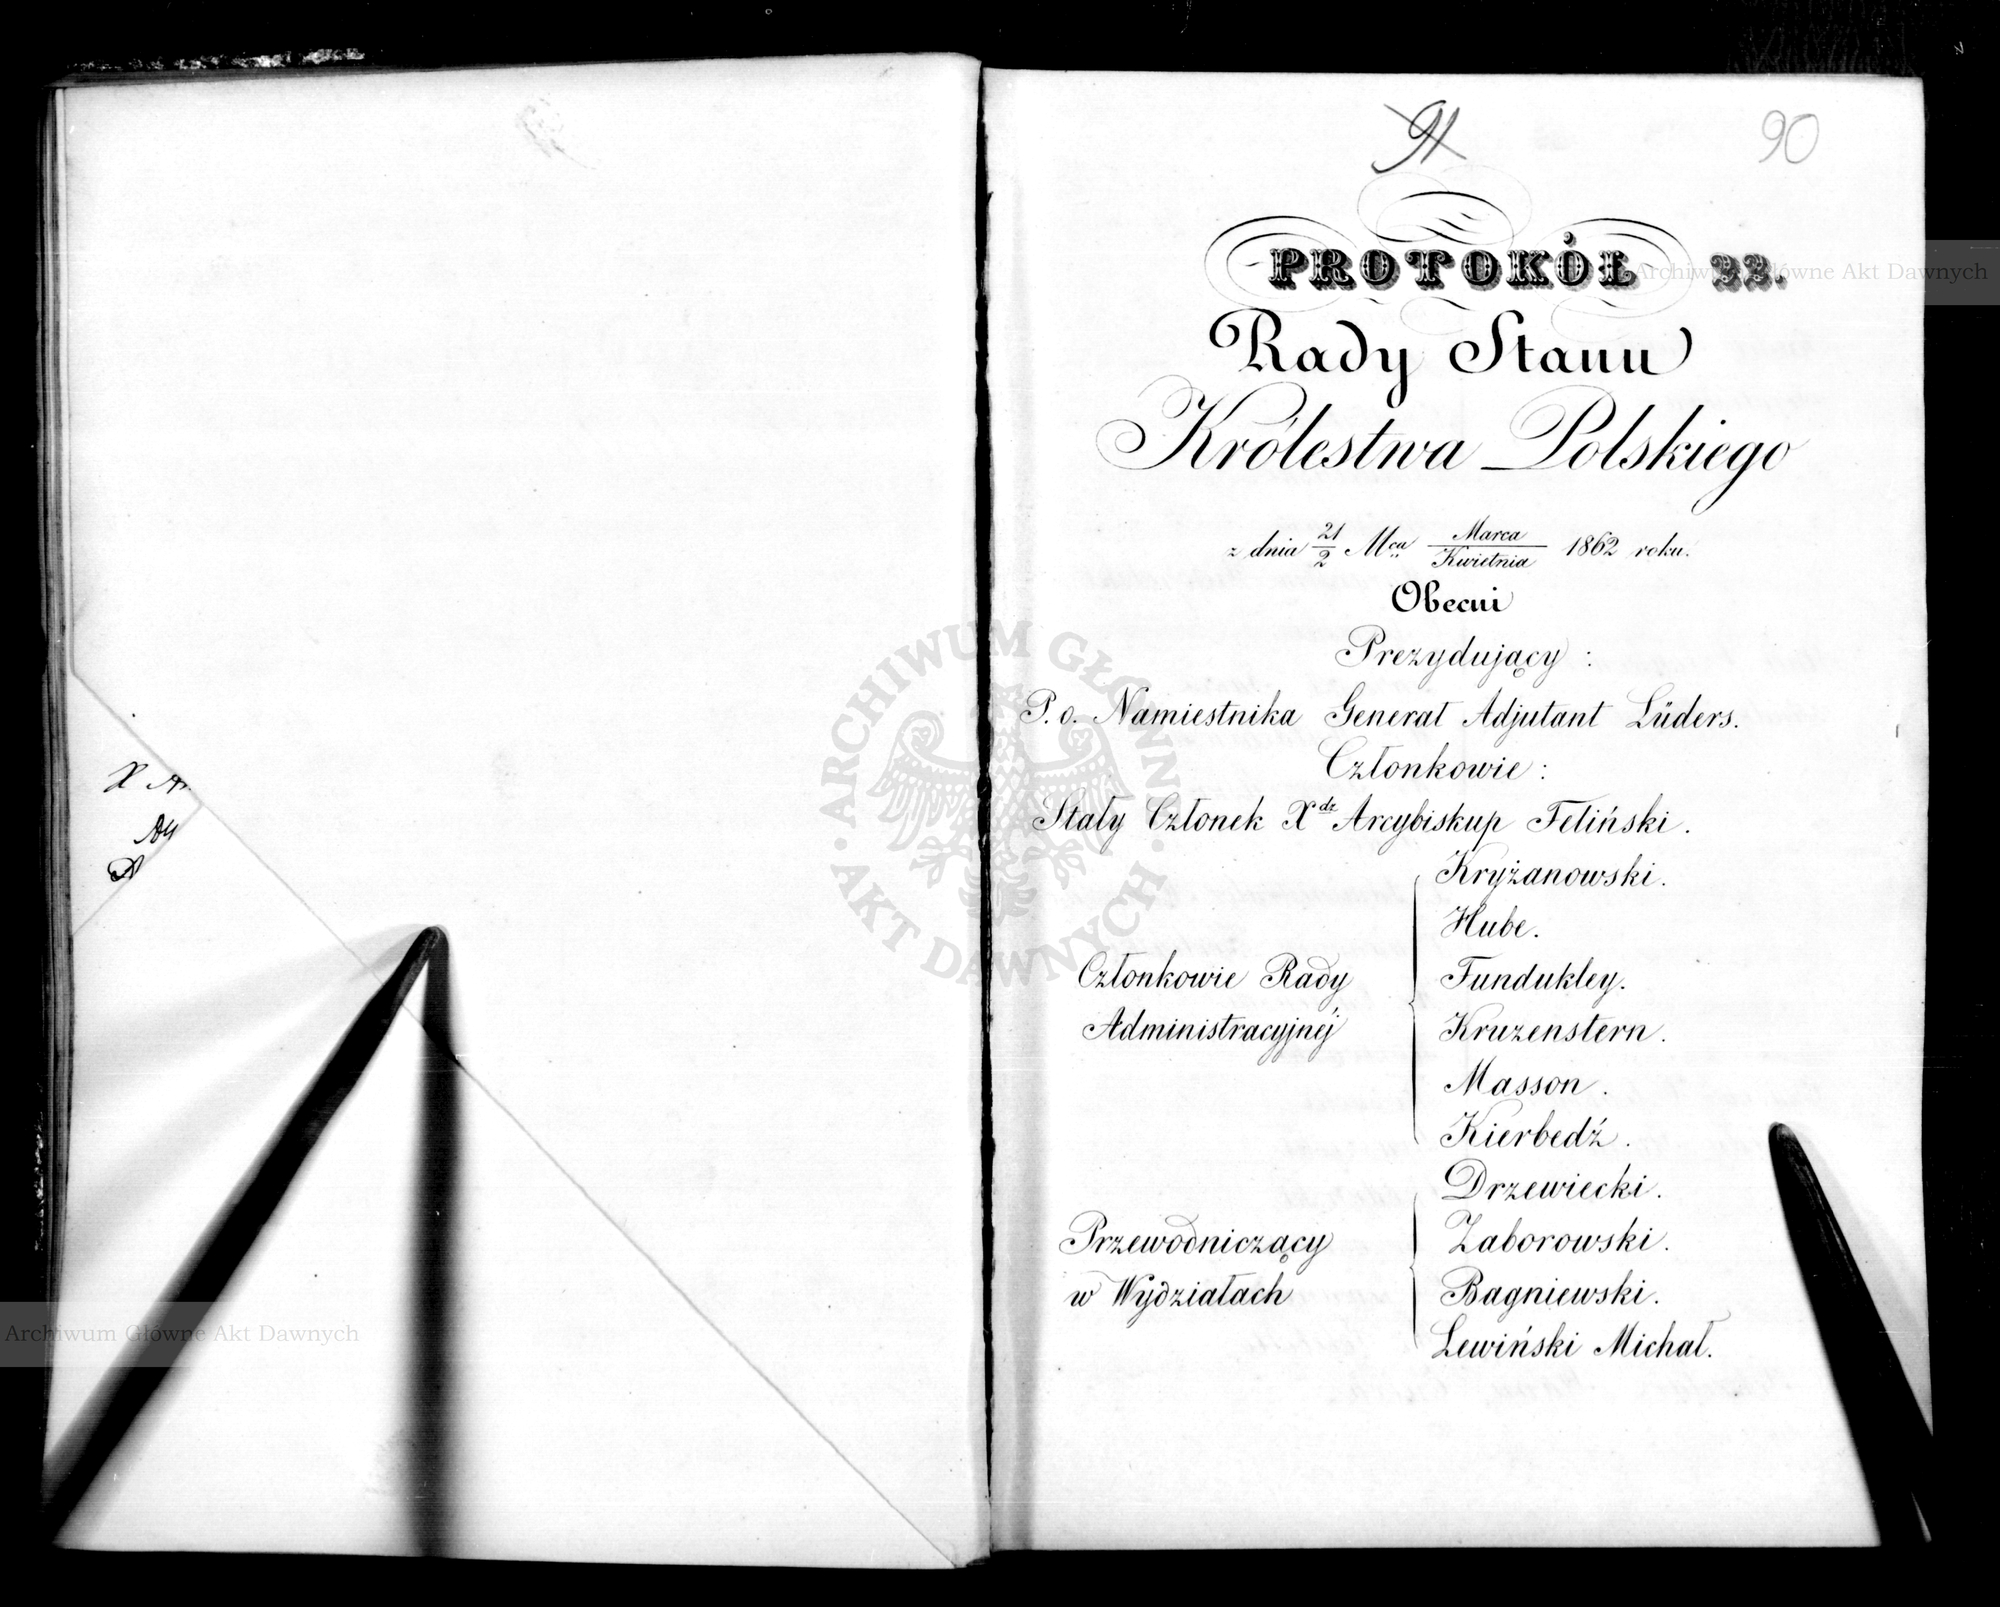 X A
Ay
D
91
90
PROTOKÓŁ 22.
Rady Stanu
Królestwa Polskiego
z dnia 21/2 Mca Marca/Kwietnia 1862 roku.
Obecni
Prezydujący:
P. o. Namiestnika Generał Adjutant Lüders.
Członkowie:
Stały Członek Xdz Arcybiskup Feliński.
Członkowie Rady
Administracyjnéj
Kryżanowski.
Hube.
Fundukley.
Kruzenstern.
Masson.
Kierbedź.
Przewodniczący
w Wydziałach
Drzewiecki.
Zaborowski.
Bagniewski.
Lewiński Michał.
Archiwum Główne Akt Dawnych
ARCHIWUM GŁÓWNE AKT DAWNYCH
Archiwum Główne Akt Dawnych